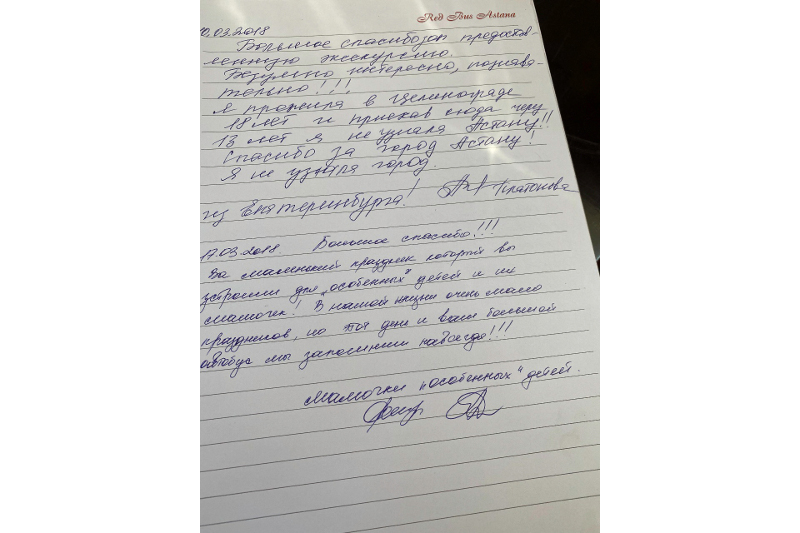 Red Bus Astana
10.03.2018
Большое спасибо за предостав-
ленную экскурсию.
Безумно интересно, познава-
тельно!!!
Я прожила в Целинограде
18 лет и приехав сюда через
13 лет я не узнала Астану!!
Спасибо за город Астану!
Я не узнала город.
из Екатеринбурга! Платонова
17.03.2018. Большое спасибо!!!
За маленький праздник который вы
устроили для „особенных" детей и их
мамочек! В нашей жизни очень мало
праздников, но этот день и ваш большой
автобус мы запомним навсегда!!!
мамочки „особенных" детей.